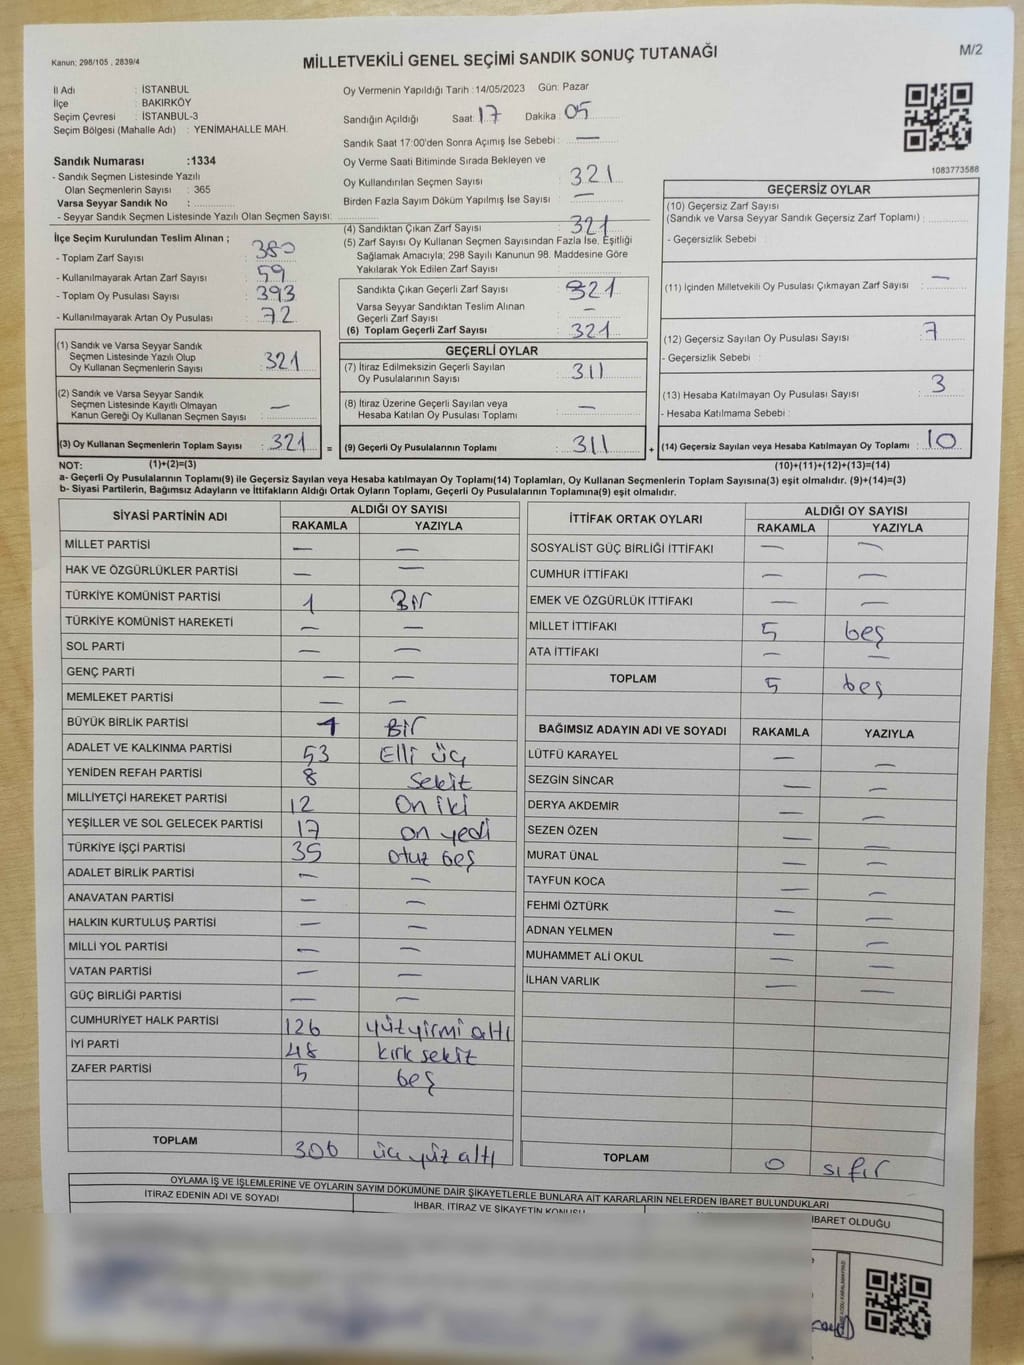 Kanun: 298/105 , 2839/4
MİLLETVEKİLİ GENEL SEÇİMİ SANDIK SONUÇ TUTANAĞI
M/2
İl Adı : İSTANBUL
İlçe : BAKIRKÖY
Seçim Çevresi : İSTANBUL-3
Seçim Bölgesi (Mahalle Adı) : YENİMAHALLE MAH.
Sandık Numarası :1334
- Sandık Seçmen Listesinde Yazılı
Olan Seçmenlerin Sayısı : 365
Varsa Seyyar Sandık No :
- Seyyar Sandık Seçmen Listesinde Yazılı Olan Seçmen Sayısı:
Oy Vermenin Yapıldığı Tarih : 14/05/2023 Gün: Pazar
Sandığın Açıldığı Saat: 17 Dakika : 05
Sandık Saat 17:00'den Sonra Açımış İse Sebebi : —
Oy Verme Saati Bitiminde Sırada Bekleyen ve
Oy Kullandırılan Seçmen Sayısı 321
Birden Fazla Sayım Döküm Yapılmış İse Sayısı : —
1083773588
İlçe Seçim Kurulundan Teslim Alınan ;
- Toplam Zarf Sayısı : 380
- Kullanılmayarak Artan Zarf Sayısı : 59
- Toplam Oy Pusulası Sayısı : 393
- Kullanılmayarak Artan Oy Pusulası : 72
(1) Sandık ve Varsa Seyyar Sandık
Seçmen Listesinde Yazılı Olup
Oy Kullanan Seçmenlerin Sayısı : 321
(2) Sandık ve Varsa Seyyar Sandık
Seçmen Listesinde Kayıtlı Olmayan
Kanun Gereği Oy Kullanan Seçmen Sayısı : —
(3) Oy Kullanan Seçmenlerin Toplam Sayısı : 321 =
(4) Sandıktan Çıkan Zarf Sayısı : 321
(5) Zarf Sayısı Oy Kullanan Seçmen Sayısından Fazla İse, Eşitliği
Sağlamak Amacıyla; 298 Sayılı Kanunun 98. Maddesine Göre
Yakılarak Yok Edilen Zarf Sayısı :
Sandıkta Çıkan Geçerli Zarf Sayısı : 321
Varsa Seyyar Sandıktan Teslim Alınan
Geçerli Zarf Sayısı : —
(6) Toplam Geçerli Zarf Sayısı : 321
GEÇERLİ OYLAR
(7) İtiraz Edilmeksizin Geçerli Sayılan
Oy Pusulalarının Sayısı : 311
(8) İtiraz Üzerine Geçerli Sayılan veya
Hesaba Katılan Oy Pusulası Toplamı : —
(9) Geçerli Oy Pusulalarının Toplamı : 311 +
GEÇERSİZ OYLAR
(10) Geçersiz Zarf Sayısı
(Sandık ve Varsa Seyyar Sandık Geçersiz Zarf Toplamı) :
- Geçersizlik Sebebi :
(11) İçinden Milletvekili Oy Pusulası Çıkmayan Zarf Sayısı : —
(12) Geçersiz Sayılan Oy Pusulası Sayısı : 7
- Geçersizlik Sebebi :
(13) Hesaba Katılmayan Oy Pusulası Sayısı : 3
- Hesaba Katılmama Sebebi :
(14) Geçersiz Sayılan veya Hesaba Katılmayan Oy Toplamı : 10
NOT: (1)+(2)=(3) (10)+(11)+(12)+(13)=(14)
a- Geçerli Oy Pusulalarının Toplamı(9) ile Geçersiz Sayılan veya Hesaba katılmayan Oy Toplamı(14) Toplamları, Oy Kullanan Seçmenlerin Toplam Sayısına(3) eşit olmalıdır. (9)+(14)=(3)
b- Siyasi Partilerin, Bağımsız Adayların ve İttifakların Aldığı Ortak Oyların Toplamı, Geçerli Oy Pusulalarının Toplamına(9) eşit olmalıdır.
SİYASİ PARTİNİN ADI ALDIĞI OY SAYISI
RAKAMLA YAZIYLA
MİLLET PARTİSİ — —
HAK VE ÖZGÜRLÜKLER PARTİSİ — —
TÜRKİYE KOMÜNİST PARTİSİ 1 Bir
TÜRKİYE KOMÜNİST HAREKETİ — —
SOL PARTİ — —
GENÇ PARTİ — —
MEMLEKET PARTİSİ — —
BÜYÜK BİRLİK PARTİSİ 1 Bir
ADALET VE KALKINMA PARTİSİ 53 Elli üç
YENİDEN REFAH PARTİSİ 8 Sekiz
MİLLİYETÇİ HAREKET PARTİSİ 12 On iki
YEŞİLLER VE SOL GELECEK PARTİSİ 17 on yedi
TÜRKİYE İŞÇİ PARTİSİ 35 otuz beş
ADALET BİRLİK PARTİSİ — —
ANAVATAN PARTİSİ — —
HALKIN KURTULUŞ PARTİSİ — —
MİLLİ YOL PARTİSİ — —
VATAN PARTİSİ — —
GÜÇ BİRLİĞİ PARTİSİ — —
CUMHURİYET HALK PARTİSİ 126 yüz yirmi altı
İYİ PARTİ 48 kırk sekiz
ZAFER PARTİSİ 5 beş
TOPLAM 306 üç yüz altı
İTTİFAK ORTAK OYLARI ALDIĞI OY SAYISI
RAKAMLA YAZIYLA
SOSYALİST GÜÇ BİRLİĞİ İTTİFAKI — —
CUMHUR İTTİFAKI — —
EMEK VE ÖZGÜRLÜK İTTİFAKI — —
MİLLET İTTİFAKI 5 beş
ATA İTTİFAKI — —
TOPLAM 5 beş
BAĞIMSIZ ADAYIN ADI VE SOYADI RAKAMLA YAZIYLA
LÜTFÜ KARAYEL — —
SEZGİN SİNCAR — —
DERYA AKDEMİR — —
SEZEN ÖZEN — —
MURAT ÜNAL — —
TAYFUN KOCA — —
FEHMİ ÖZTÜRK — —
ADNAN YELMEN — —
MUHAMMET ALİ OKUL — —
İLHAN VARLIK — —
TOPLAM 0 sıfır
OYLAMA İŞ VE İŞLEMLERİNE VE OYLARIN SAYIM DÖKÜMÜNE DAİR ŞİKAYETLERLE BUNLARA AİT KARARLARIN NELERDEN İBARET BULUNDUKLARI
İTİRAZ EDENİN ADI VE SOYADI İHBAR, İTİRAZ VE ŞİKAYETİN KONUSU İBARET OLDUĞU